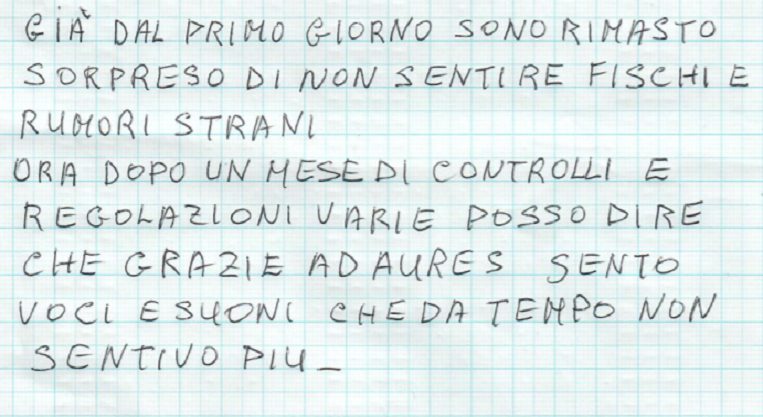 GIÀ DAL PRIMO GIORNO SONO RIMASTO
SORPRESO DI NON SENTIRE FISCHI E
RUMORI STRANI
ORA DOPO UN MESE DI CONTROLLI E
REGOLAZIONI VARIE POSSO DIRE
CHE GRAZIE AD AURES SENTO
VOCI E SUONI CHE DA TEMPO NON
SENTIVO PIU_